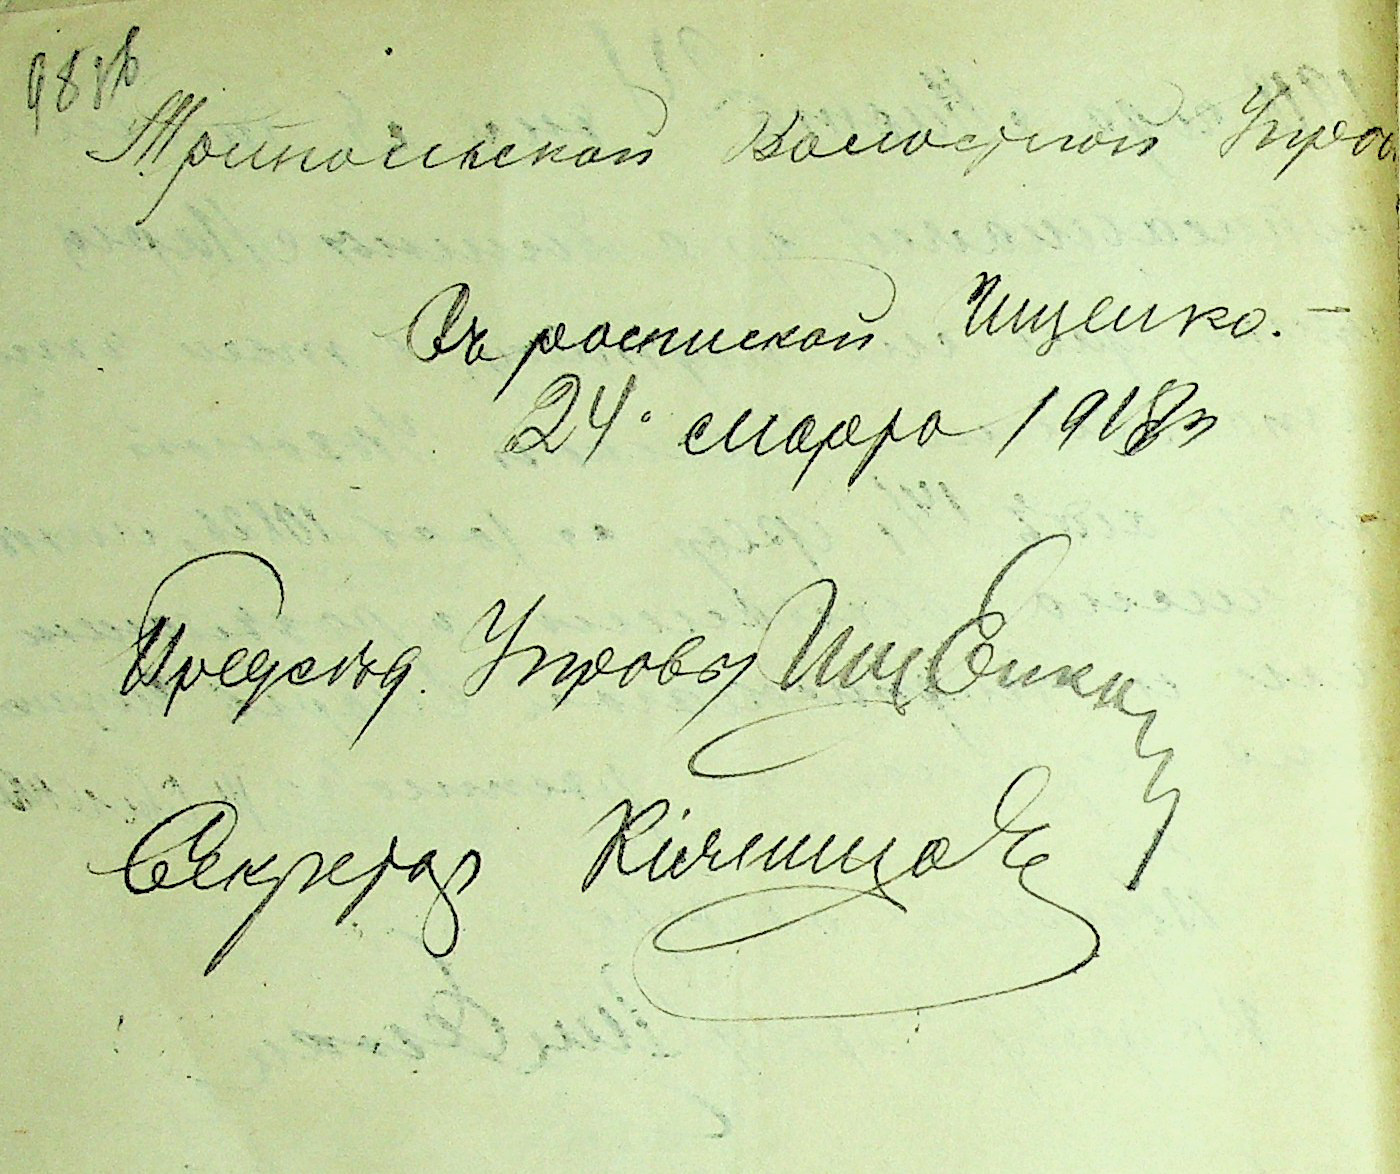 98 зв
Трипольской Волостной Управ
Съ роспиской Ищенко. —
24. марта 1918 г
Предсѣд. Управы Ищенко
Секретар